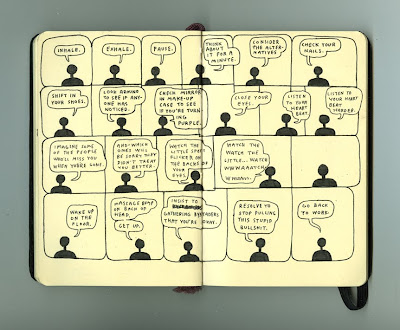 INHALE.
EXHALE.
PAUSE.
THINK
ABOUT
IT FOR A
MINUTE.
CONSIDER
THE ALTER-
NATIVES
CHECK YOUR
NAILS.
SHIFT IN
YOUR SHOES.
LOOK AROUND
TO SEE IF ANY-
ONE HAS
NOTICED.
CHECK MIRROR
IN MAKE-UP
CASE TO SEE
IF YOU'RE TURN-
ING
PURPLE.
CLOSE YOUR
EYES.
LISTEN
TO YOUR
HEART
BEAT.
LISTEN TO
YOUR HEART
BEAT
HARDER.
IMAGINE SOME
OF THE PEOPLE
WHO'LL MISS YOU
WHEN YOU'RE GONE.
AND WHICH
ONES WILL
BE SORRY THEY
DIDN'T TREAT
YOU BETTER.
WATCH THE
LITTLE SPOTS
FLICKER ON
THE BACKS OF
YOUR
EYES.
WATCH THE
WATCH THE
LITTLE... WATCH
WWWAAATCH
WAKE UP
ON THE
FLOOR.
MASSAGE BUMP
ON BACK OF
HEAD.
GET UP.
INSIST TO
GATHERING BYSTANDERS
THAT YOU'RE OKAY.
RESOLVE TO
STOP PULLING
THIS STUPID
BULLSHIT.
GO BACK
TO WORK.